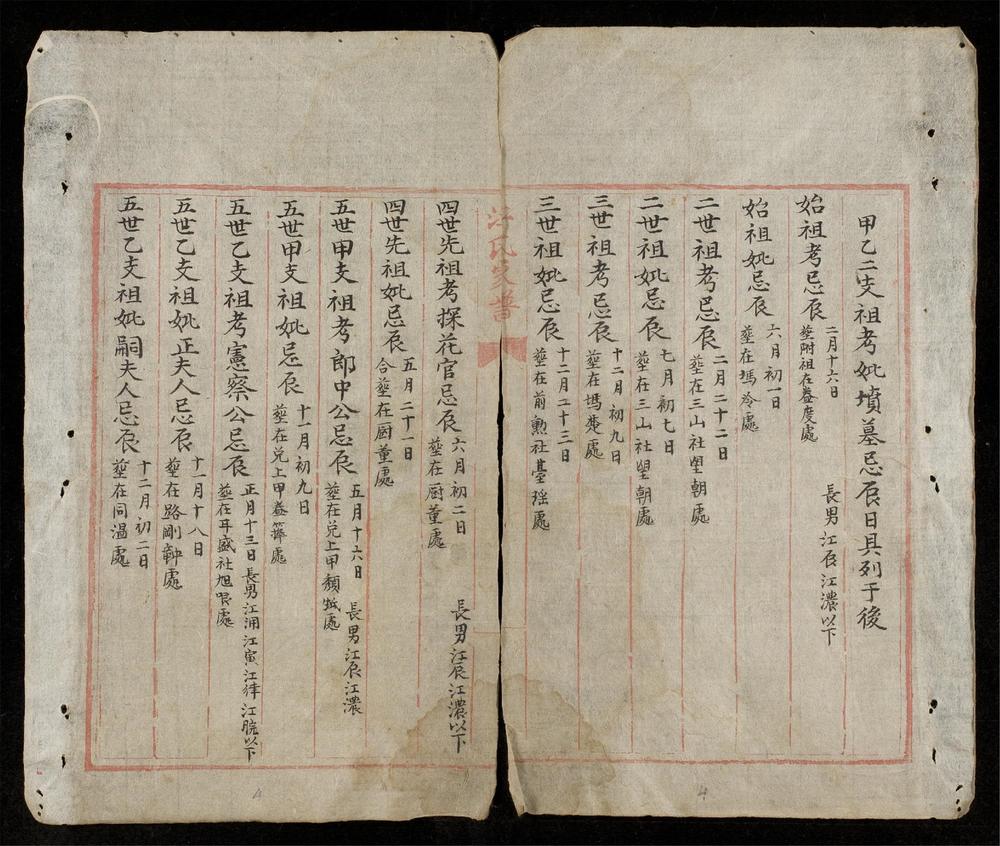 甲乙二支祖考妣墳墓忌辰日具列于後
始祖考忌辰
二月十六日
塟附祖在益度處
長男江辰江濃以下
始祖妣忌辰
六月初一日
塟在塢冷處
二世祖考忌辰
二月二十二日
塟在三山社朝處
二世祖妣忌辰
七月初七日
塟在三山社朝處
三世祖考忌辰
十二月初九日
塟在塢處
三世祖妣忌辰
十二月二十三日
塟在前勲社臺瑶處
江氏家譜
四世先祖考探花官忌辰
六月初二日
塟在厨董處
長男江辰江濃以下
四世先祖妣忌辰
五月二十一日
合塟在厨董處
五世甲支祖考郎中公忌辰
五月十六日
塟在兑上甲頽處
長男江辰江濃
五世甲支祖妣忌辰
十一月初九日
塟在兑上甲益處
五世乙支祖考憲察公忌辰
正月十三日
塟在耳盛社旭處
長男江涌江寅江律江脘以下
五世乙支祖妣正夫人忌辰
十一月十八日
塟在路剛處
五世乙支祖妣嗣夫人忌辰
十二月初二日
塟在同温處
4
4